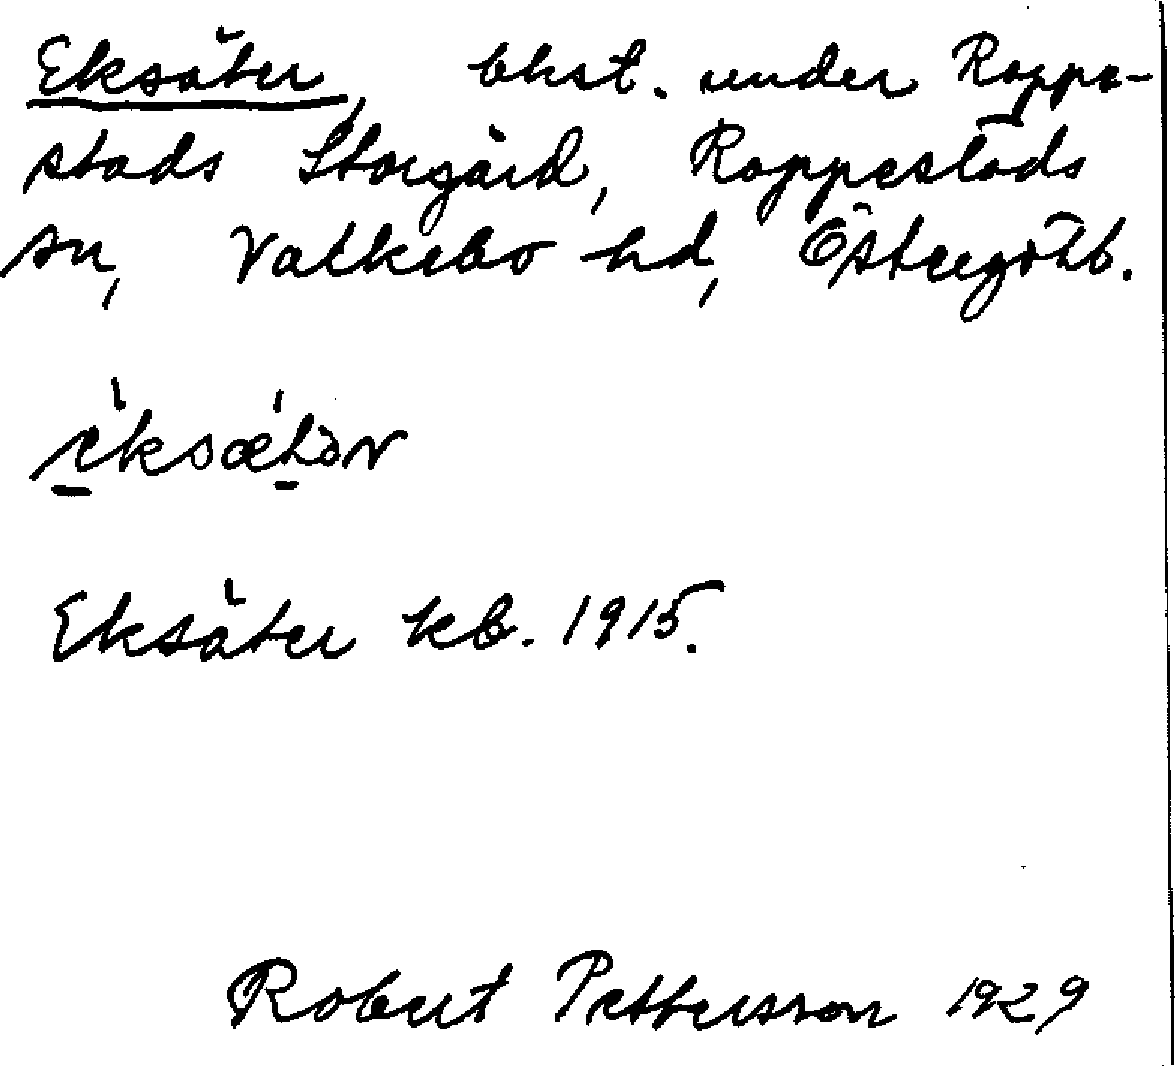 Eksäter, bhst. under Rappe-
stads Storgård, Rappestads
sn, Valkebo hd, Östergötl.
Eksäter kb. 1915.
Robert Pettersson 1929